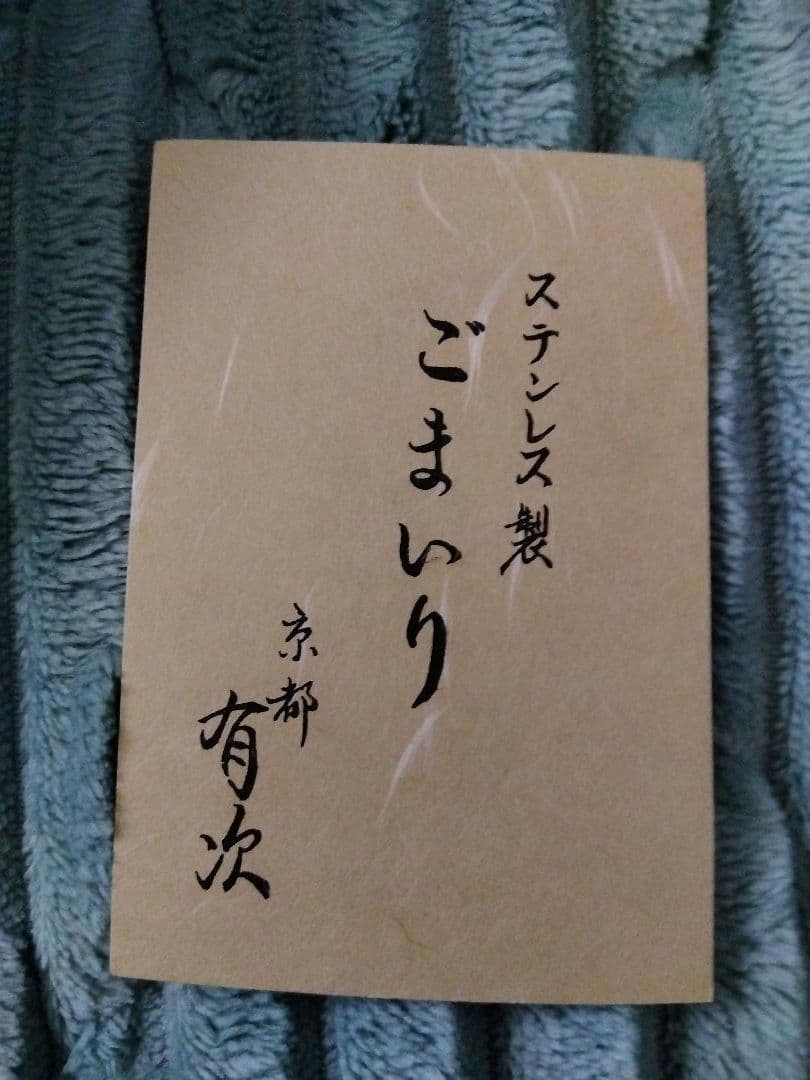 ステンレス製
ごまいり
京都
有次